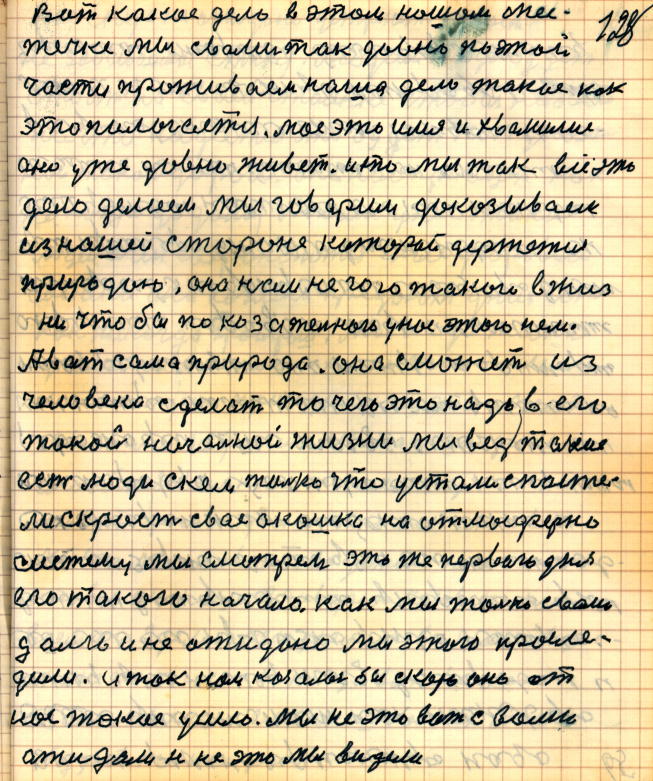 Вот какое дело в этом нашом мес- 128
течке мы с вами так довно по этой
части проживаем наша дело такое как
это полычяетця. мое это имя и хвамилие
ано уже довно живет. ито мы так все это
дело делаем мы говарим докозываем
из нашей стороне каторой держется
природою, она нам не чого такого в жиз
ни что бы по козательного у нас этого нем.
А вот сама природа. она сможет из
человека сделат то чего это надь, в его
такой начальной жизни мы вед такие
сет люди с кем толко что устали
скрост свае окошка на отмосферно
систему мы смотрем это же перваго дня
его такого начала как мы толко с вами
и не ожидоно мы этого просле-
дили. и ток нам козалос бы скоро оно от
нас такое ушло. Мы не это вот с вами
ожидали и не это мы видели